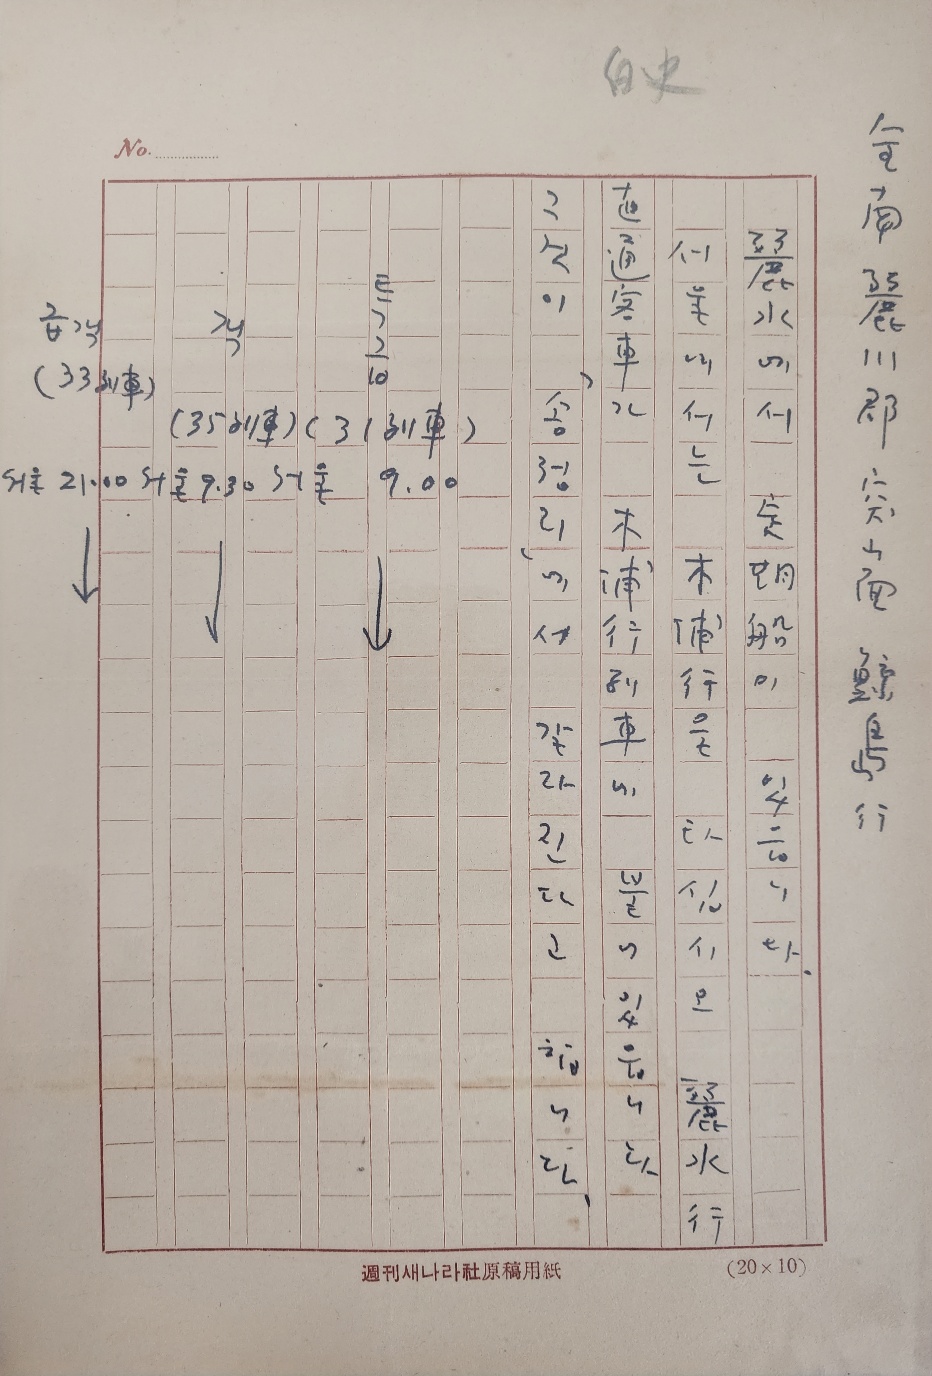 白史
No.
全南 麗川郡 突山面 鯨島行
麗水에서 定期船이 있음니다.
서울에서는 木浦行을 타십시오 麗水行
直通客車가 木浦行列車에 붙어있음니다
그것이 '송정리'에서 갈라진다고 합니다.
특급
(31列車)
서울 9.00
(35列車)
서울 9.30
(33列車)
서울 21.00
週刊새나라社原稿用紙
(20×10)